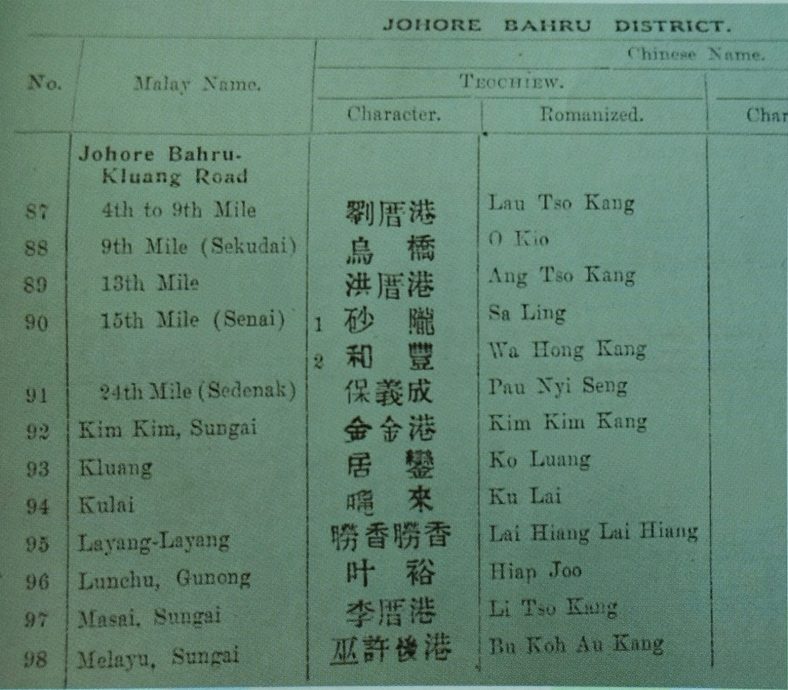 JOHORE BAHRU DISTRICT.
Chinese Name.
No. Malay Name. TEOCHIEW.
Character. Romanized. Char
Johore Bahru-
Kluang Road
87 4th to 9th Mile 劉厝港 Lau Tso Kang
88 9th Mile (Sekudai) 烏橋 O Kio
89 13th Mile 洪厝港 Ang Tso Kang
90 15th Mile (Senai) 1 砂隴 Sa Ling
2 和豐 Wa Hong Kang
91 24th Mile (Sedenak) 保義成 Pau Nyi Seng
92 Kim Kim, Sungai 金金港 Kim Kim Kang
93 Kluang 居鑾 Ko Luang
94 Kulai 來 Ku Lai
95 Layang-Layang 香香 Lai Hiang Lai Hiang
96 Lunchu, Gunong 叶裕 Hiap Joo
97 Masai, Sungai 李厝港 Li Tso Kang
98 Melayu, Sungai 巫許後港 Bu Koh Au Kang